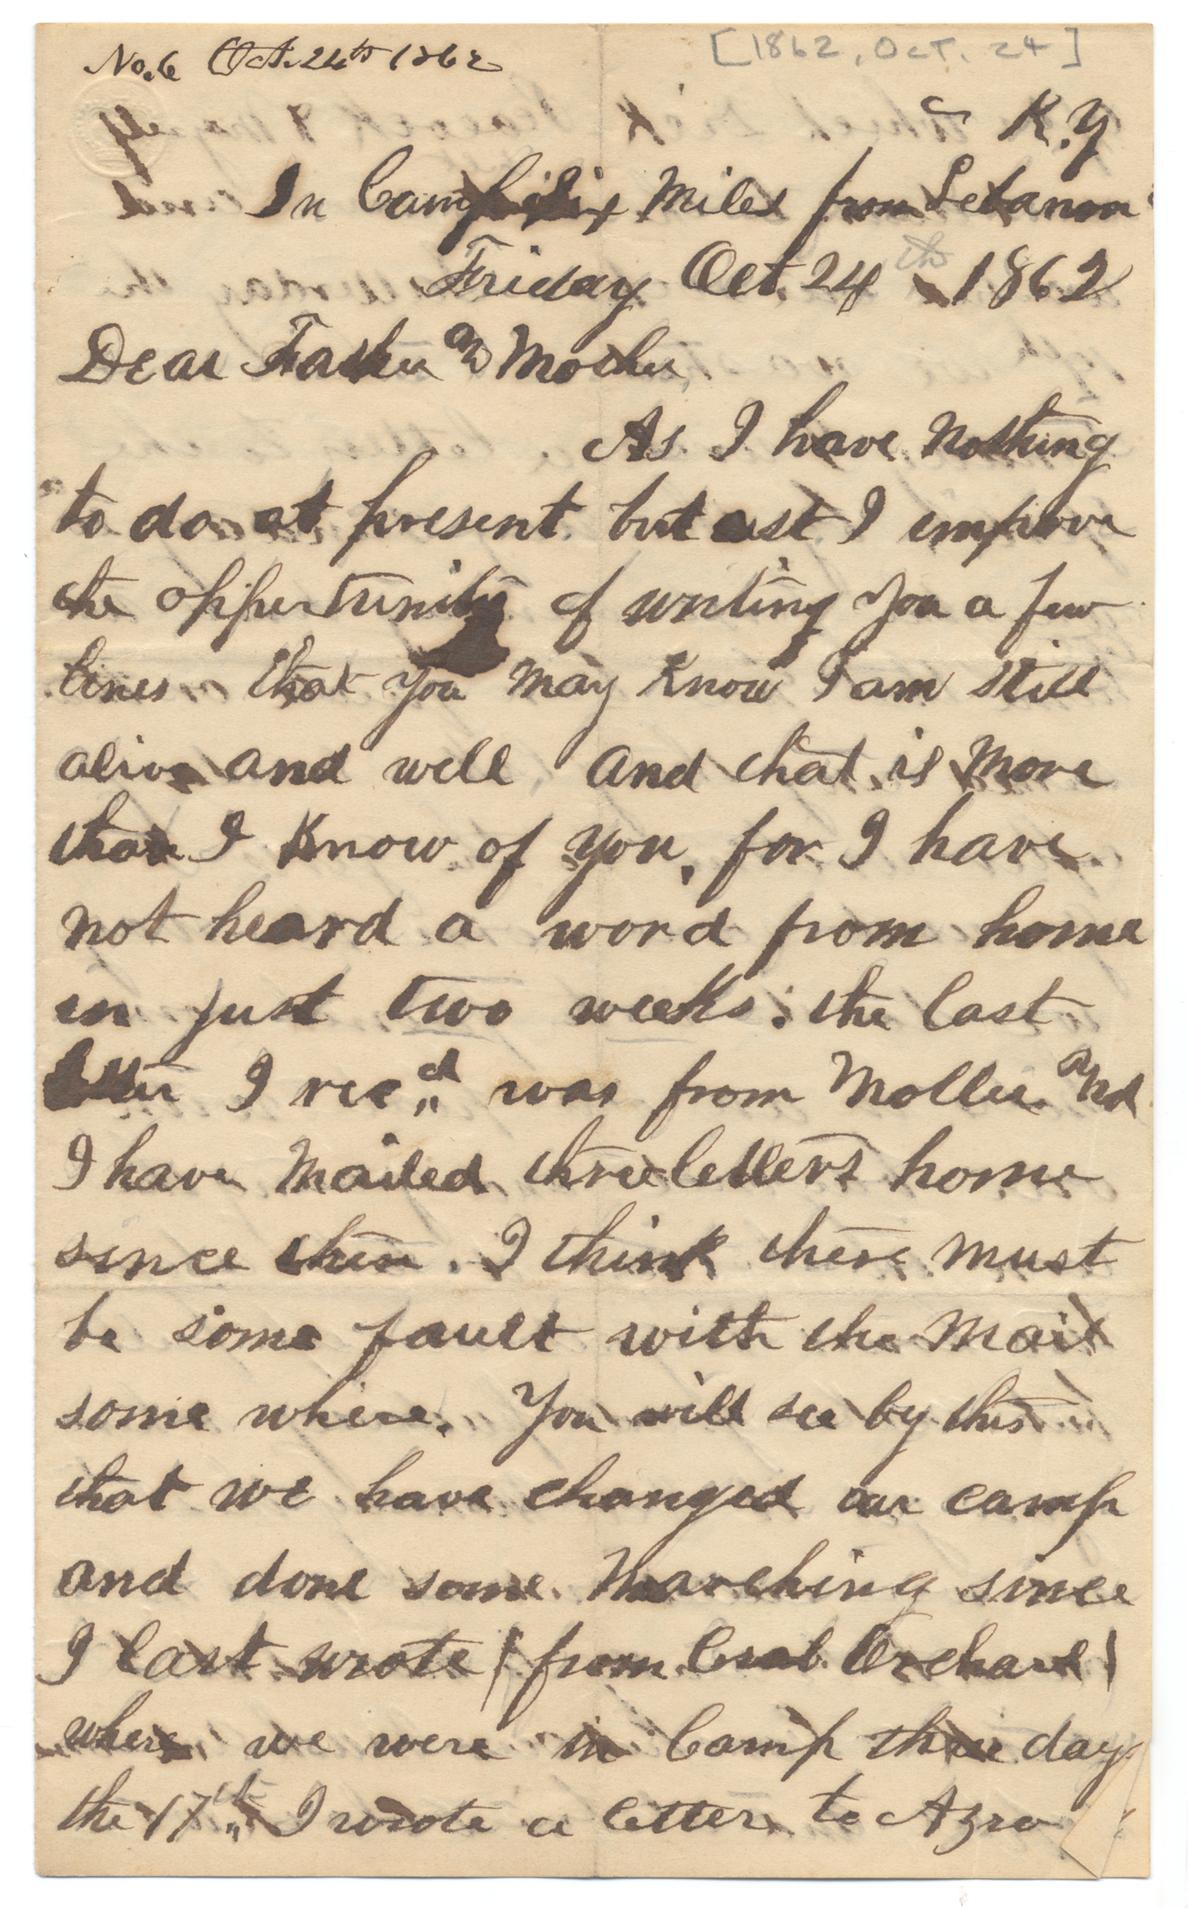 No. 6 Oct. 24th 1862
[1862, Oct. 24]
K.Y
In Camp Six Miles from Lebanon
Friday Oct. 24th 1862
Dear Father & Mother
As I have nothing
to do at present but est I improve
the oppertunity of writing you a few
lines that you may Know I am still
alive and well and that is More
than I Know of you, for I have
not heard a word from home
in just two weeks: the last
letter I recd was from Mollie and
I have Mailed three letters home
since then. I think there must
be some fault with the Mail
some where. You will see by this
that we have changed our camp
and done some Marching since
I last wrote (from Crab Orchard)
where we were in Camp three days
the 17th, I wrote a letter to Azro